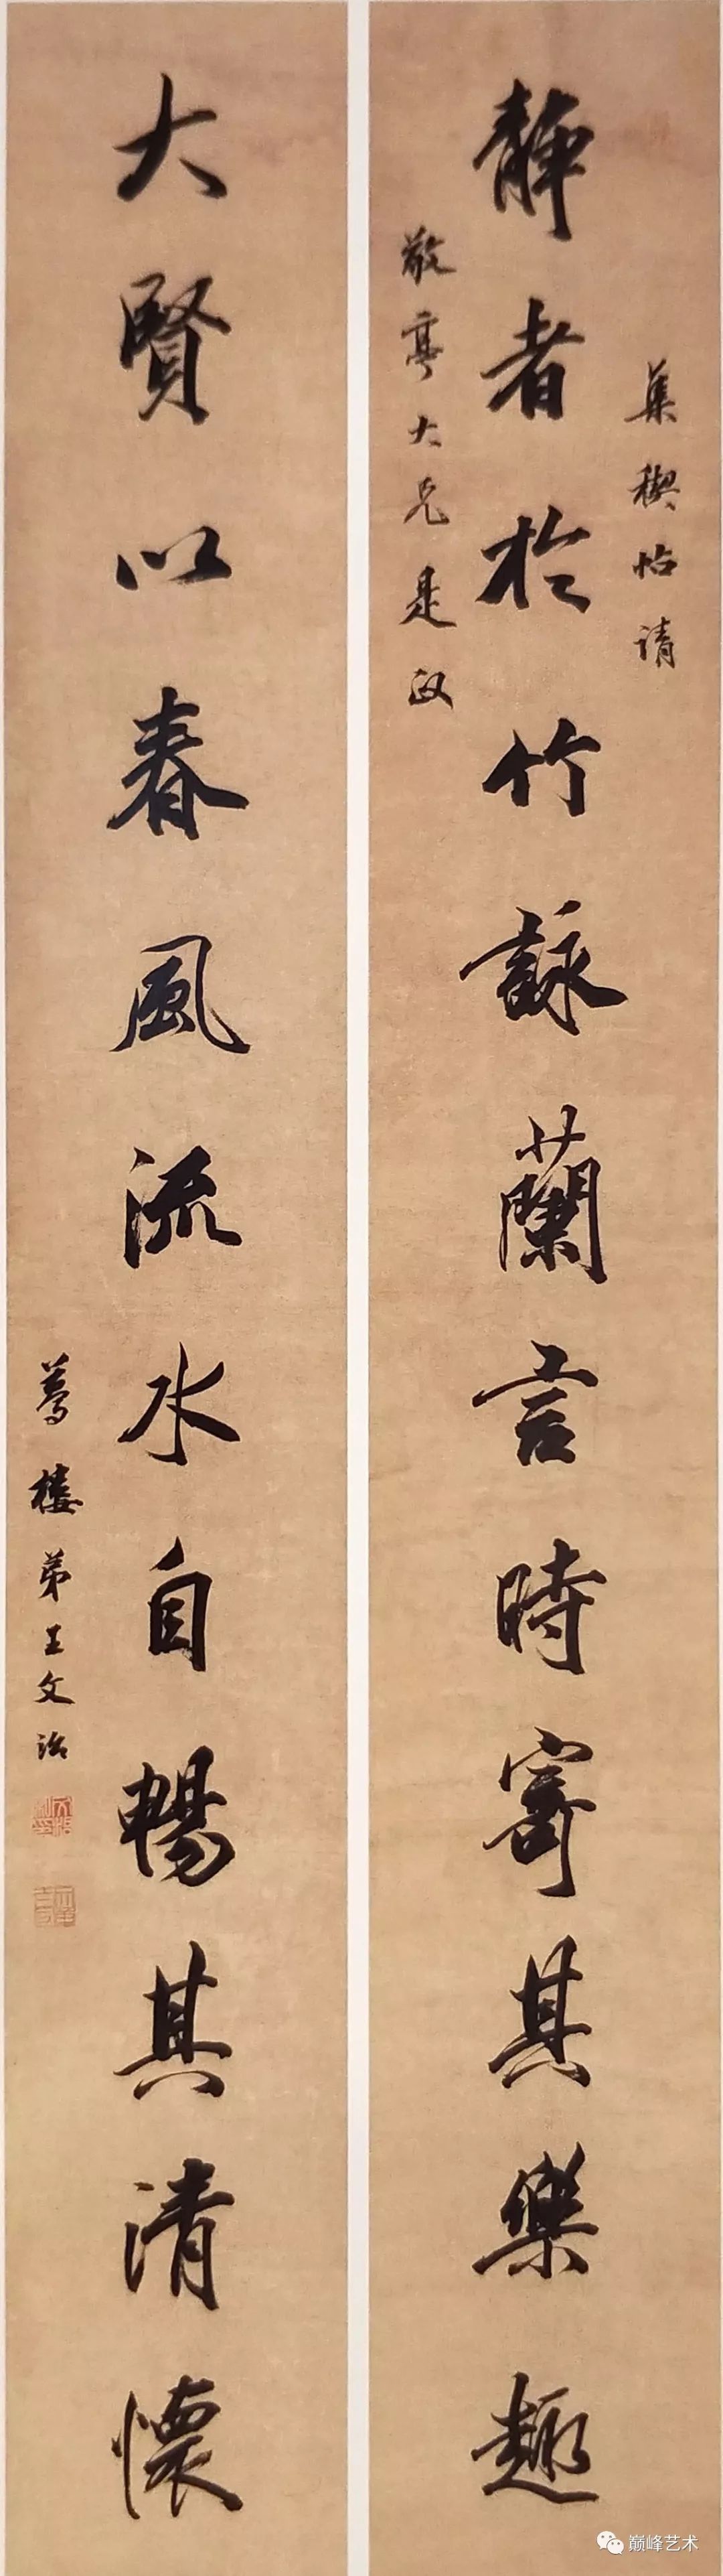 集稧帖请
静者於竹詠蘭言時寄其樂趣
敬亭大兄是政
大賢以春風流水自暢其清懷
夢樓弟王文治
巅峰艺术